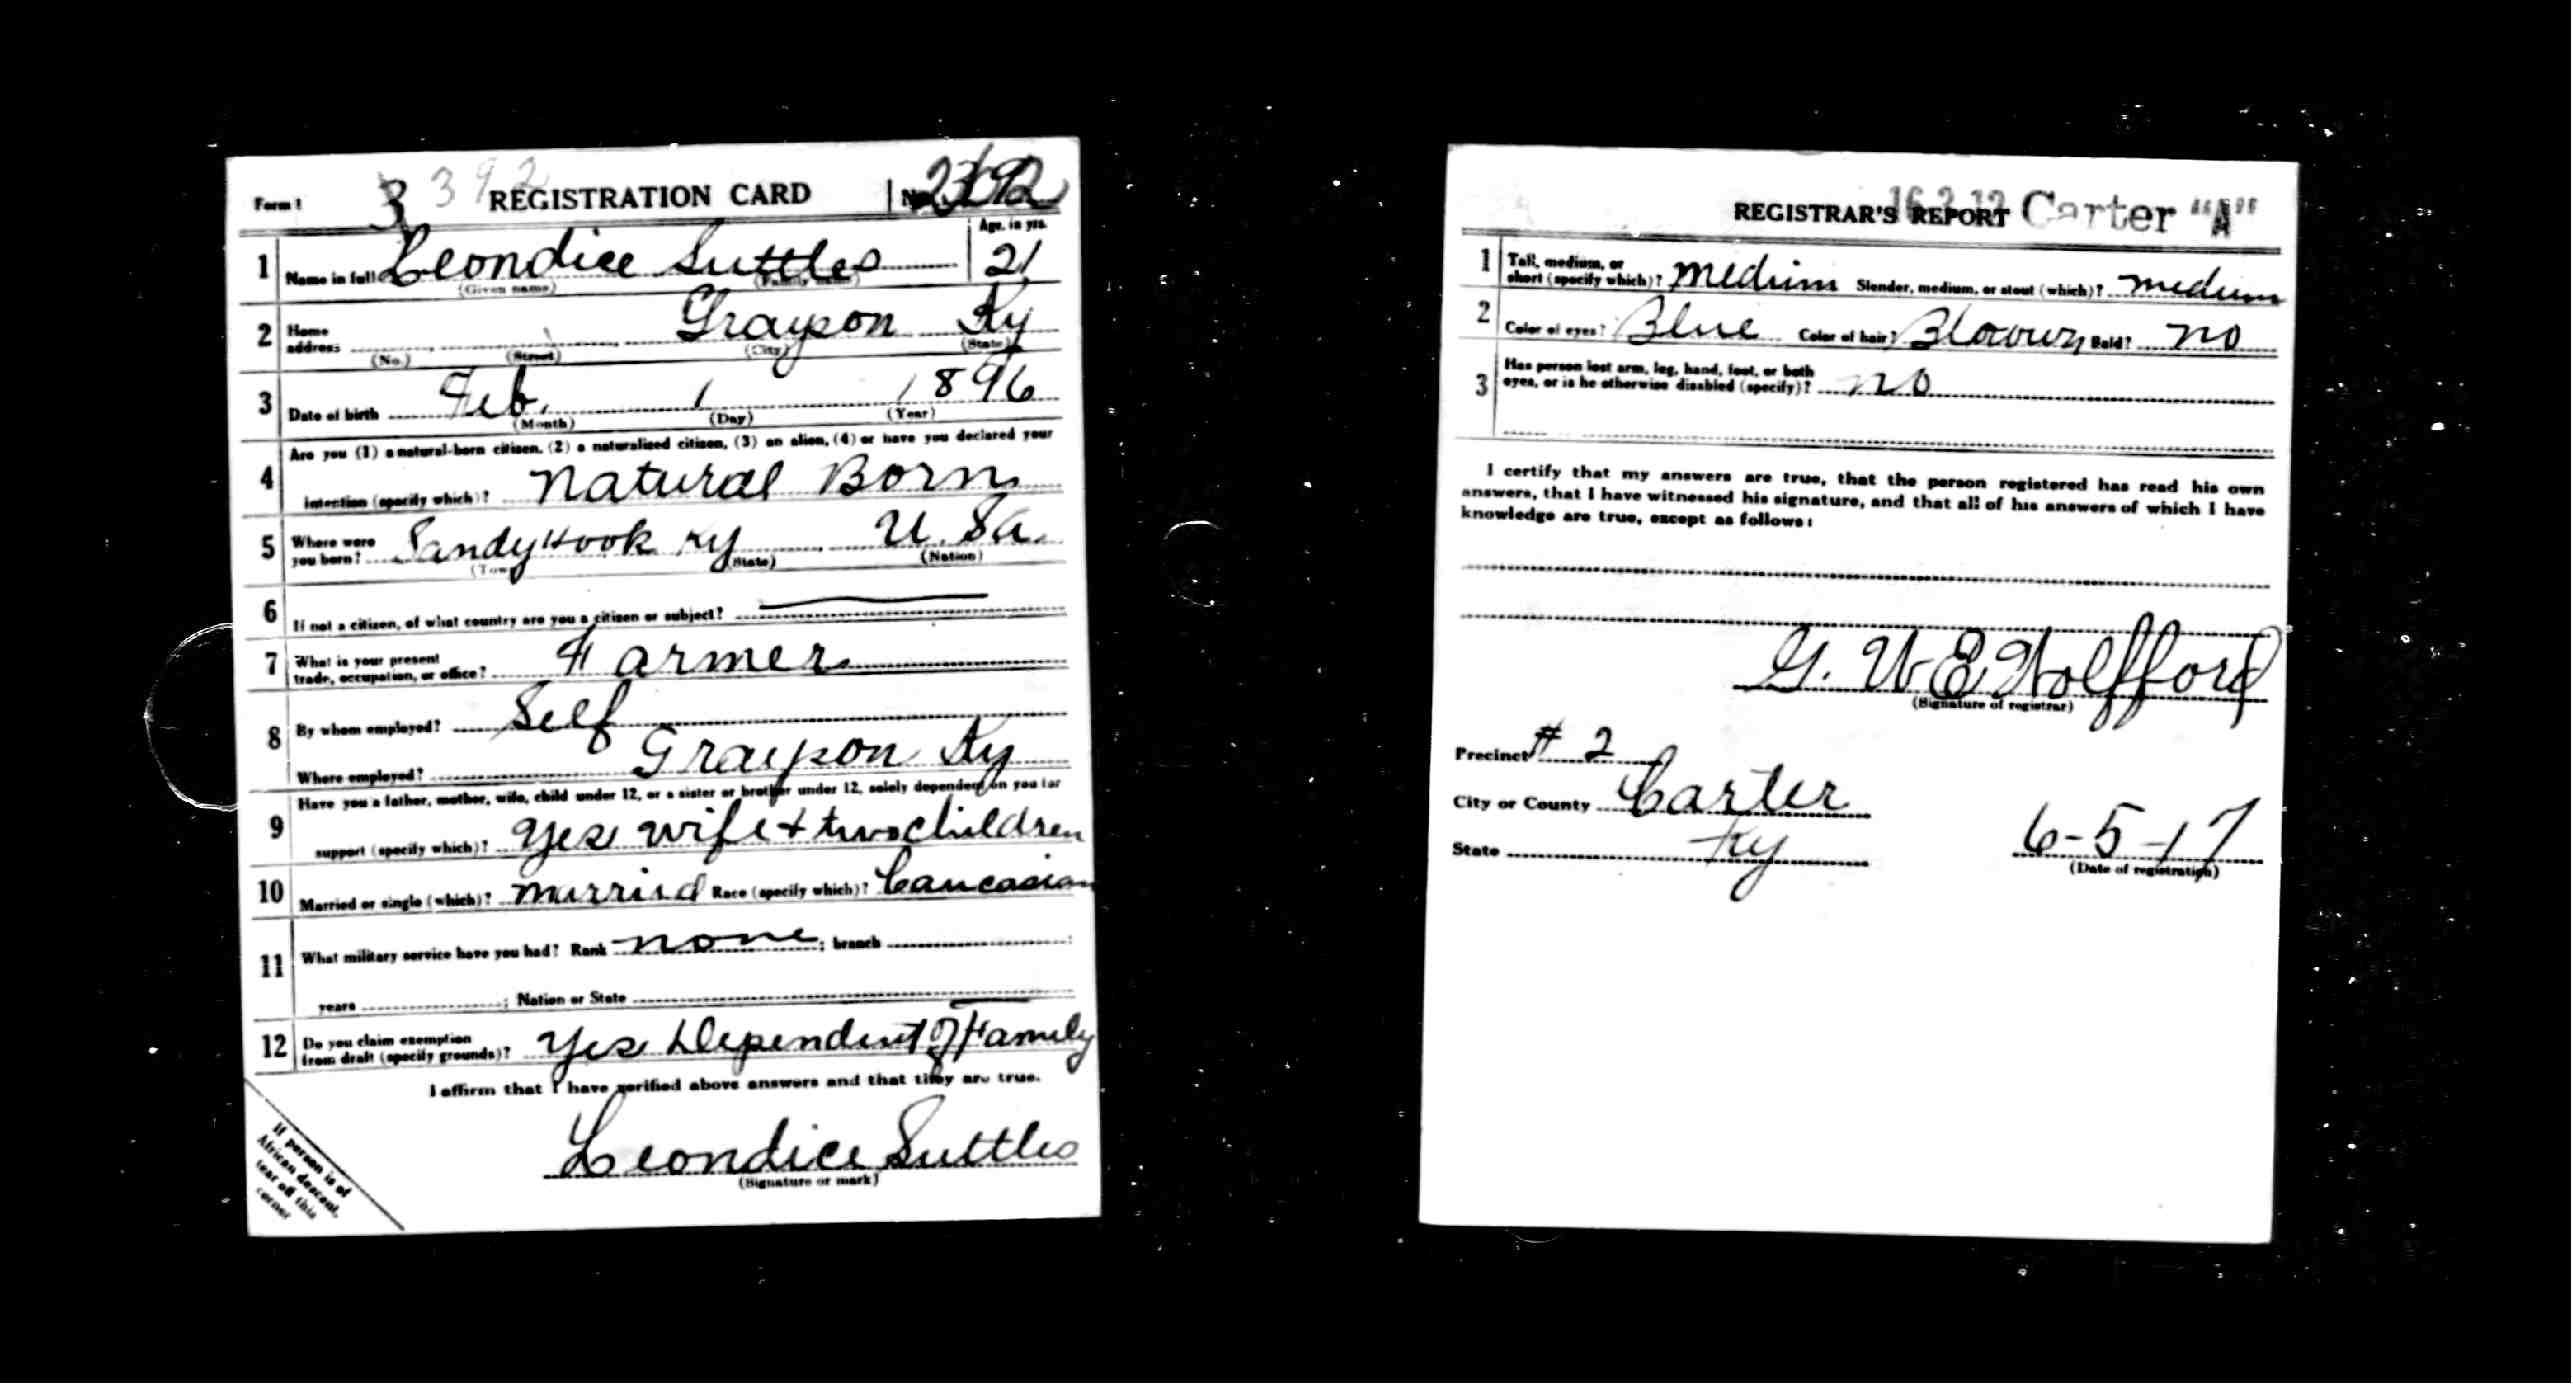 Form 1 3 392 REGISTRATION CARD No.
1 Name in full Leondice Suttles Age, in yrs. 21
(Given name) (Family name)
2 Home address Grayson Ky
(No.) (Street) (City) (State)
3 Date of birth Feb. 1 1896
(Month) (Day) (Year)
4 Are you (1) a natural-born citizen, (2) a naturalized citizen, (3) an alien, (4) or have you declared your
intention (specify which)? Natural Born
5 Where were you born? Sandy Hook Ky U. Sa.
(Town) (State) (Nation)
6 If not a citizen, of what country are you a citizen or subject?
7 What is your present trade, occupation, or office? Farmer
8 By whom employed? Self
Where employed? Grayson Ky
9 Have you a father, mother, wife, child under 12, or a sister or brother under 12, solely dependent on you for
support (specify which)? Yes wife + two children
10 Married or single (which)? married Race (specify which)? Caucasian
11 What military service have you had? Rank none; branch
years; Nation or State
12 Do you claim exemption from draft (specify grounds)? Yes Dependent of Family
I affirm that I have verified above answers and that they are true.
Leondice Suttles
(Signature or mark)
If person is of
African descent,
tear off this
corner
REGISTRAR'S REPORT Carter "A"
1 Tall, medium, or short (specify which)? medium Slender, medium, or stout (which)? medium
2 Color of eyes? Blue Color of hair? Blown Bald? no
3 Has person lost arm, leg, hand, foot, or both
eyes, or is he otherwise disabled (specify)? no
I certify that my answers are true, that the person registered has read his own
answers, that I have witnessed his signature, and that all of his answers of which I have
knowledge are true, except as follows:
G. W E Wolfford
(Signature of registrar)
Precinct # 2
City or County Carter
State Ky 6-5-17
(Date of registration)